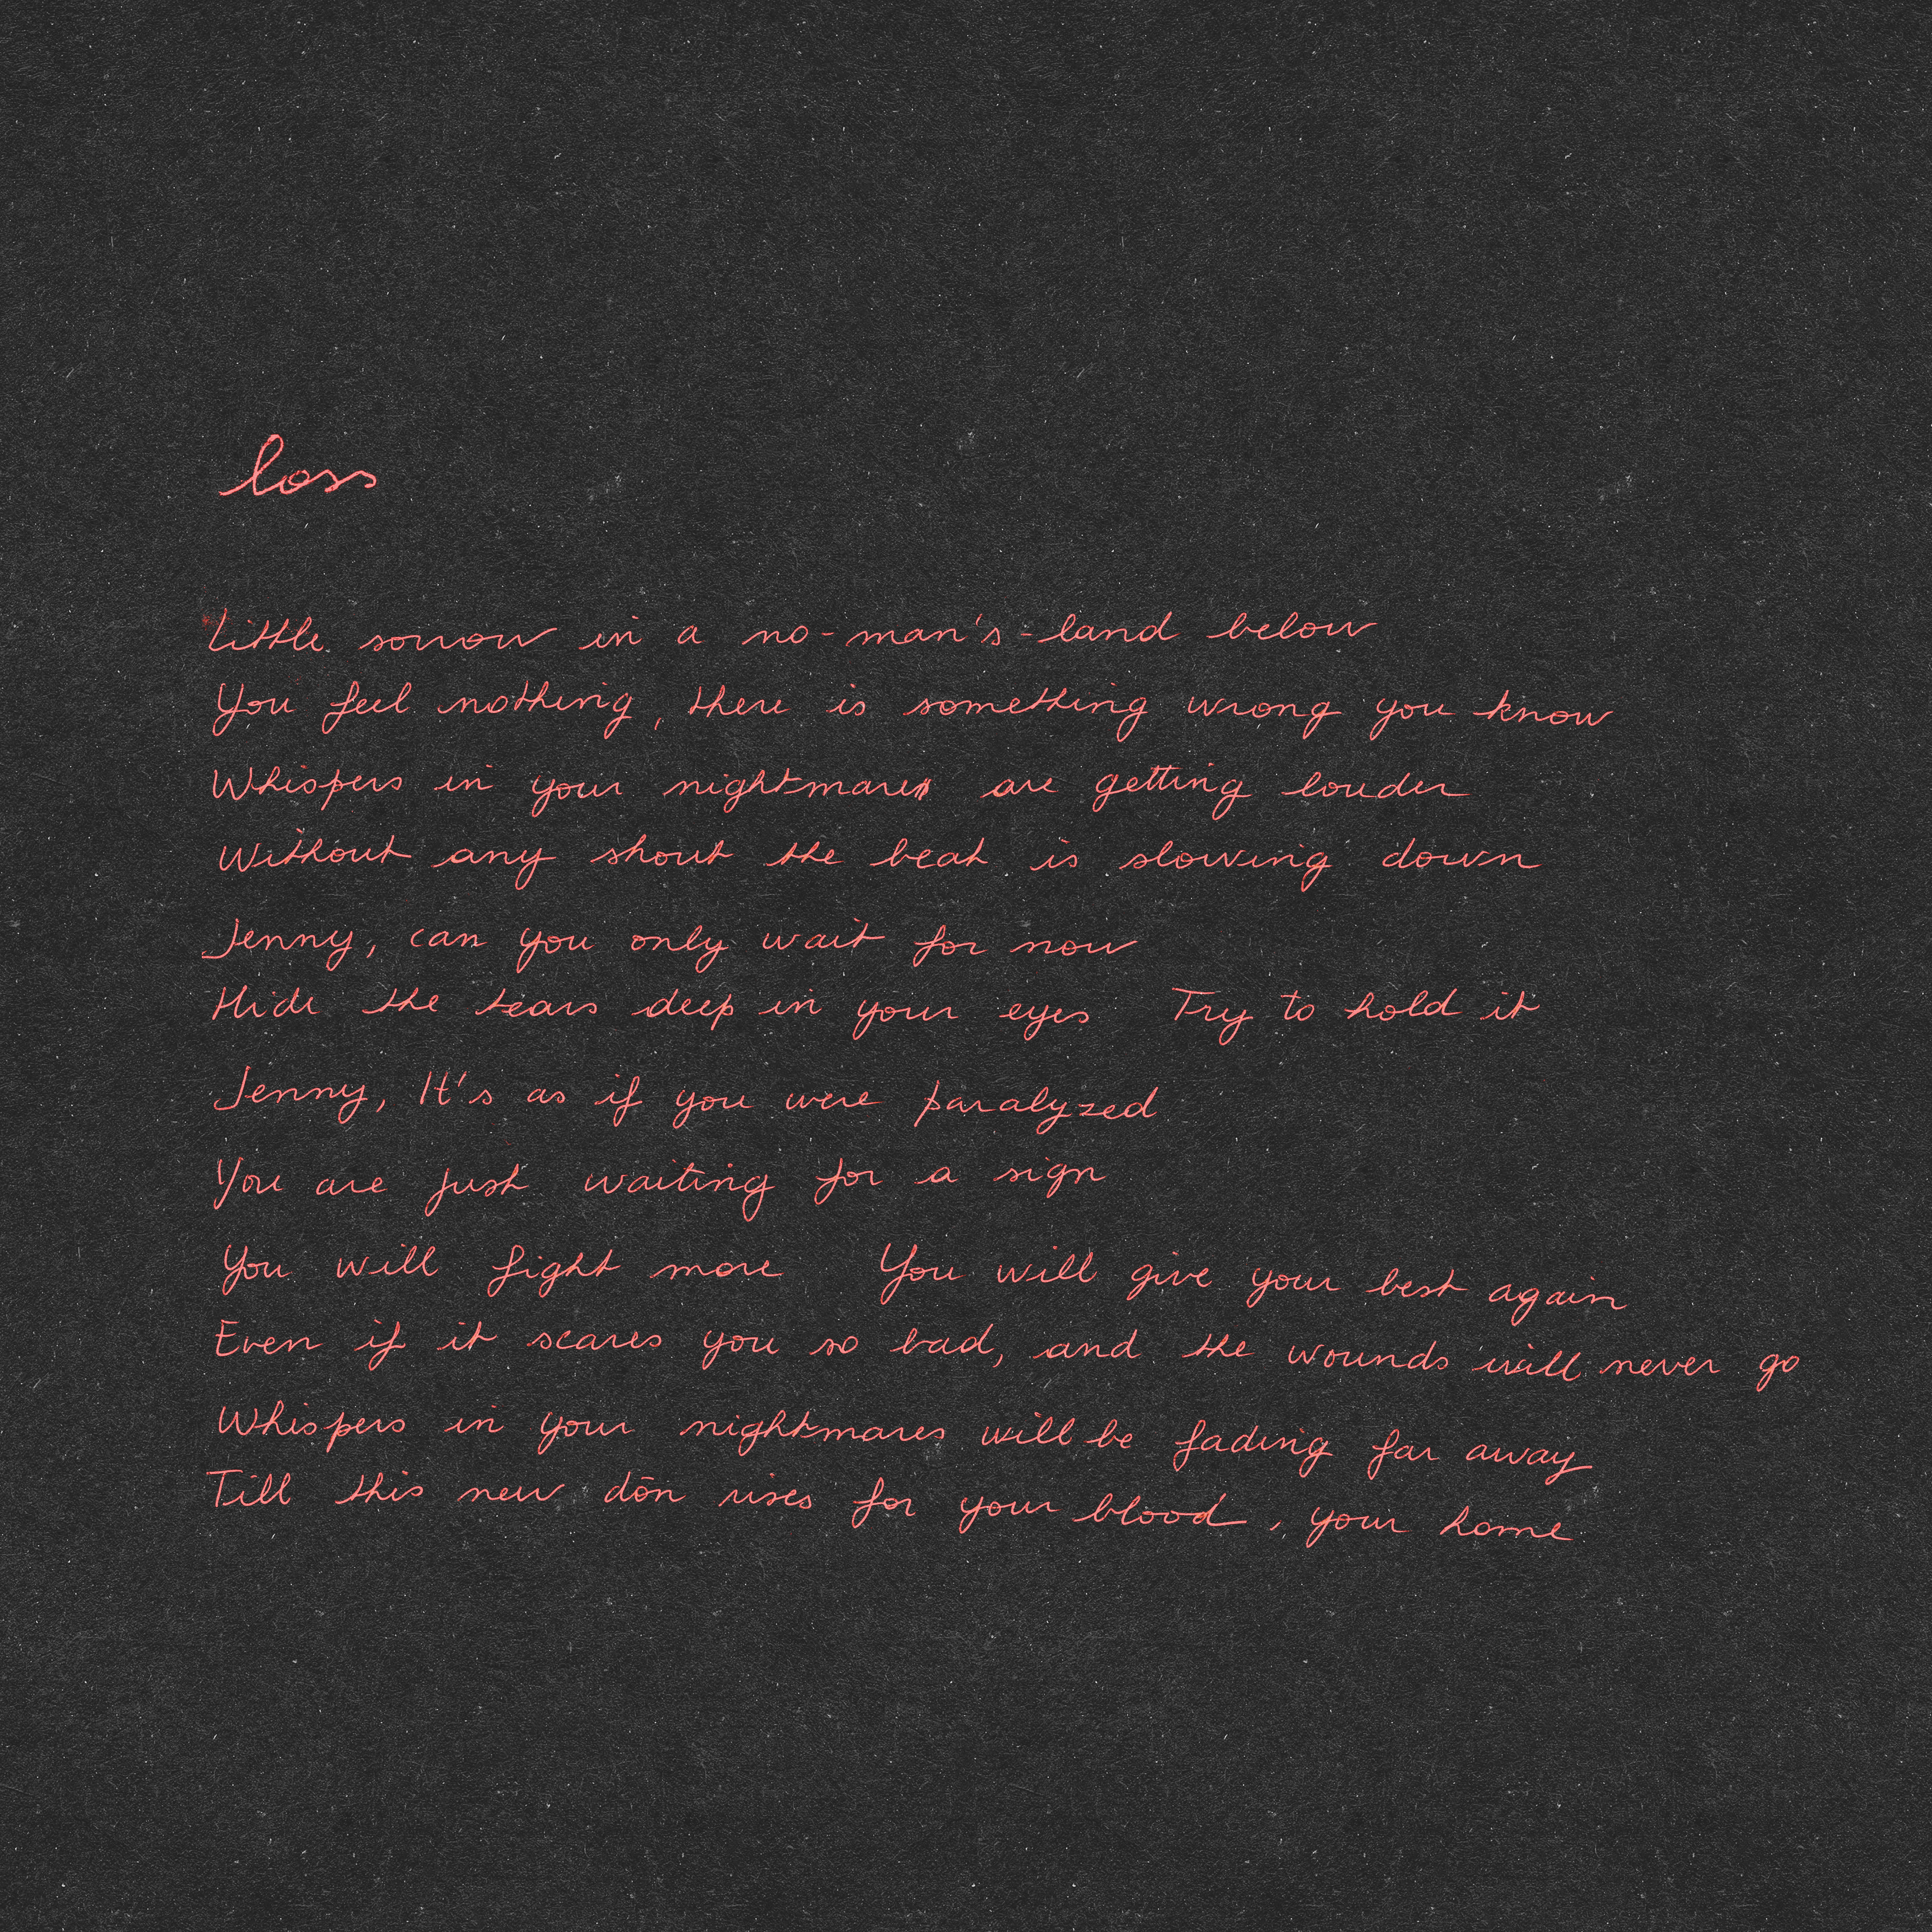 loss
Little sorrow in a no-man's-land below
You feel nothing, there is something wrong you know
Whispers in your nightmares are getting louder
Without any shout the beat is slowing down
Jenny, can you only wait for now
Hide the tears deep in your eyes Try to hold it
Jenny, It's as if you were paralyzed
You are just waiting for a sign
You will fight more You will give your best again
Even if it scares you so bad, and the wounds will never go
Whispers in your nightmares will be fading far away
Till this new dōn rises for your blood, your home